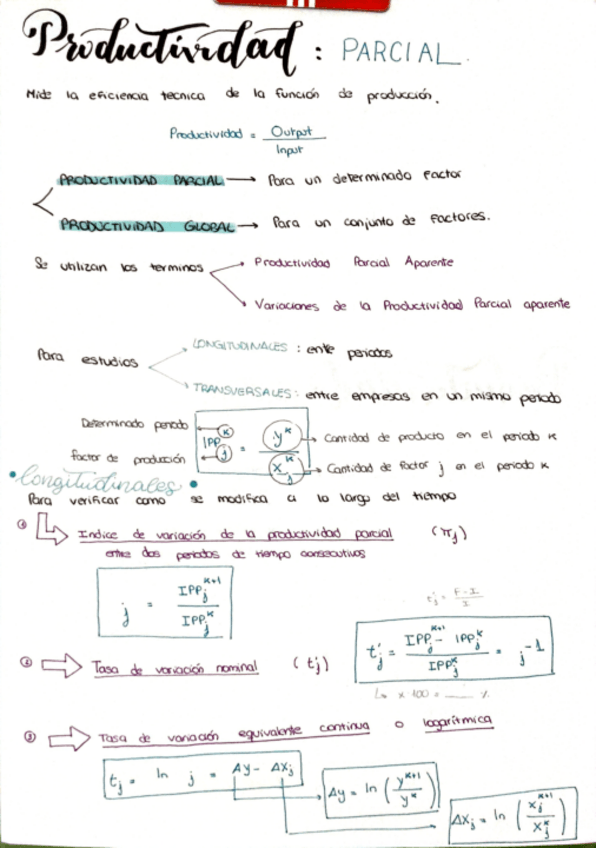 Productividad : PARCIAL.
Mide la eficiencia tecnica de la función de producción.
Productividad = Output / Input
PRODUCTIVIDAD PARCIAL → Para un determinado factor
PRODUCTIVIDAD GLOBAL → Para un conjunto de factores.
Se utilizan los terminos
Productividad Parcial Aparente
Variaciones de la Productividad Parcial aparente
Para estudios
LONGITUDINALES : entre periodos
TRANSVERSALES: entre empresas en un mismo periodo
Determinado periodo
factor de producción
IPP_j^k = y^k / x_j^k
Cantidad de producto en el periodo k
Cantidad de factor j en el periodo k
• longitudinales •
Para verificar como se modifica a lo largo del tiempo
① Indice de variación de la productividad parcial (π_j)
entre dos periodos de tiempo consecutivos
j = IPP_j^k+1 / IPP_j^k
t'_j = F-I / I
② Tasa de variación nominal (t'j)
t'_j = IPP_j^k+1 - IPP_j^k / IPP_j^k = j^-1
↳ x 100 = ___ %
③ Tasa de variación equivalente continua o logarítmica
t_j = ln j = Δy - Δx_j
Δy = ln (y^k+1 / y^k)
Δx_j = ln (x_j^k+1 / x_j^k)